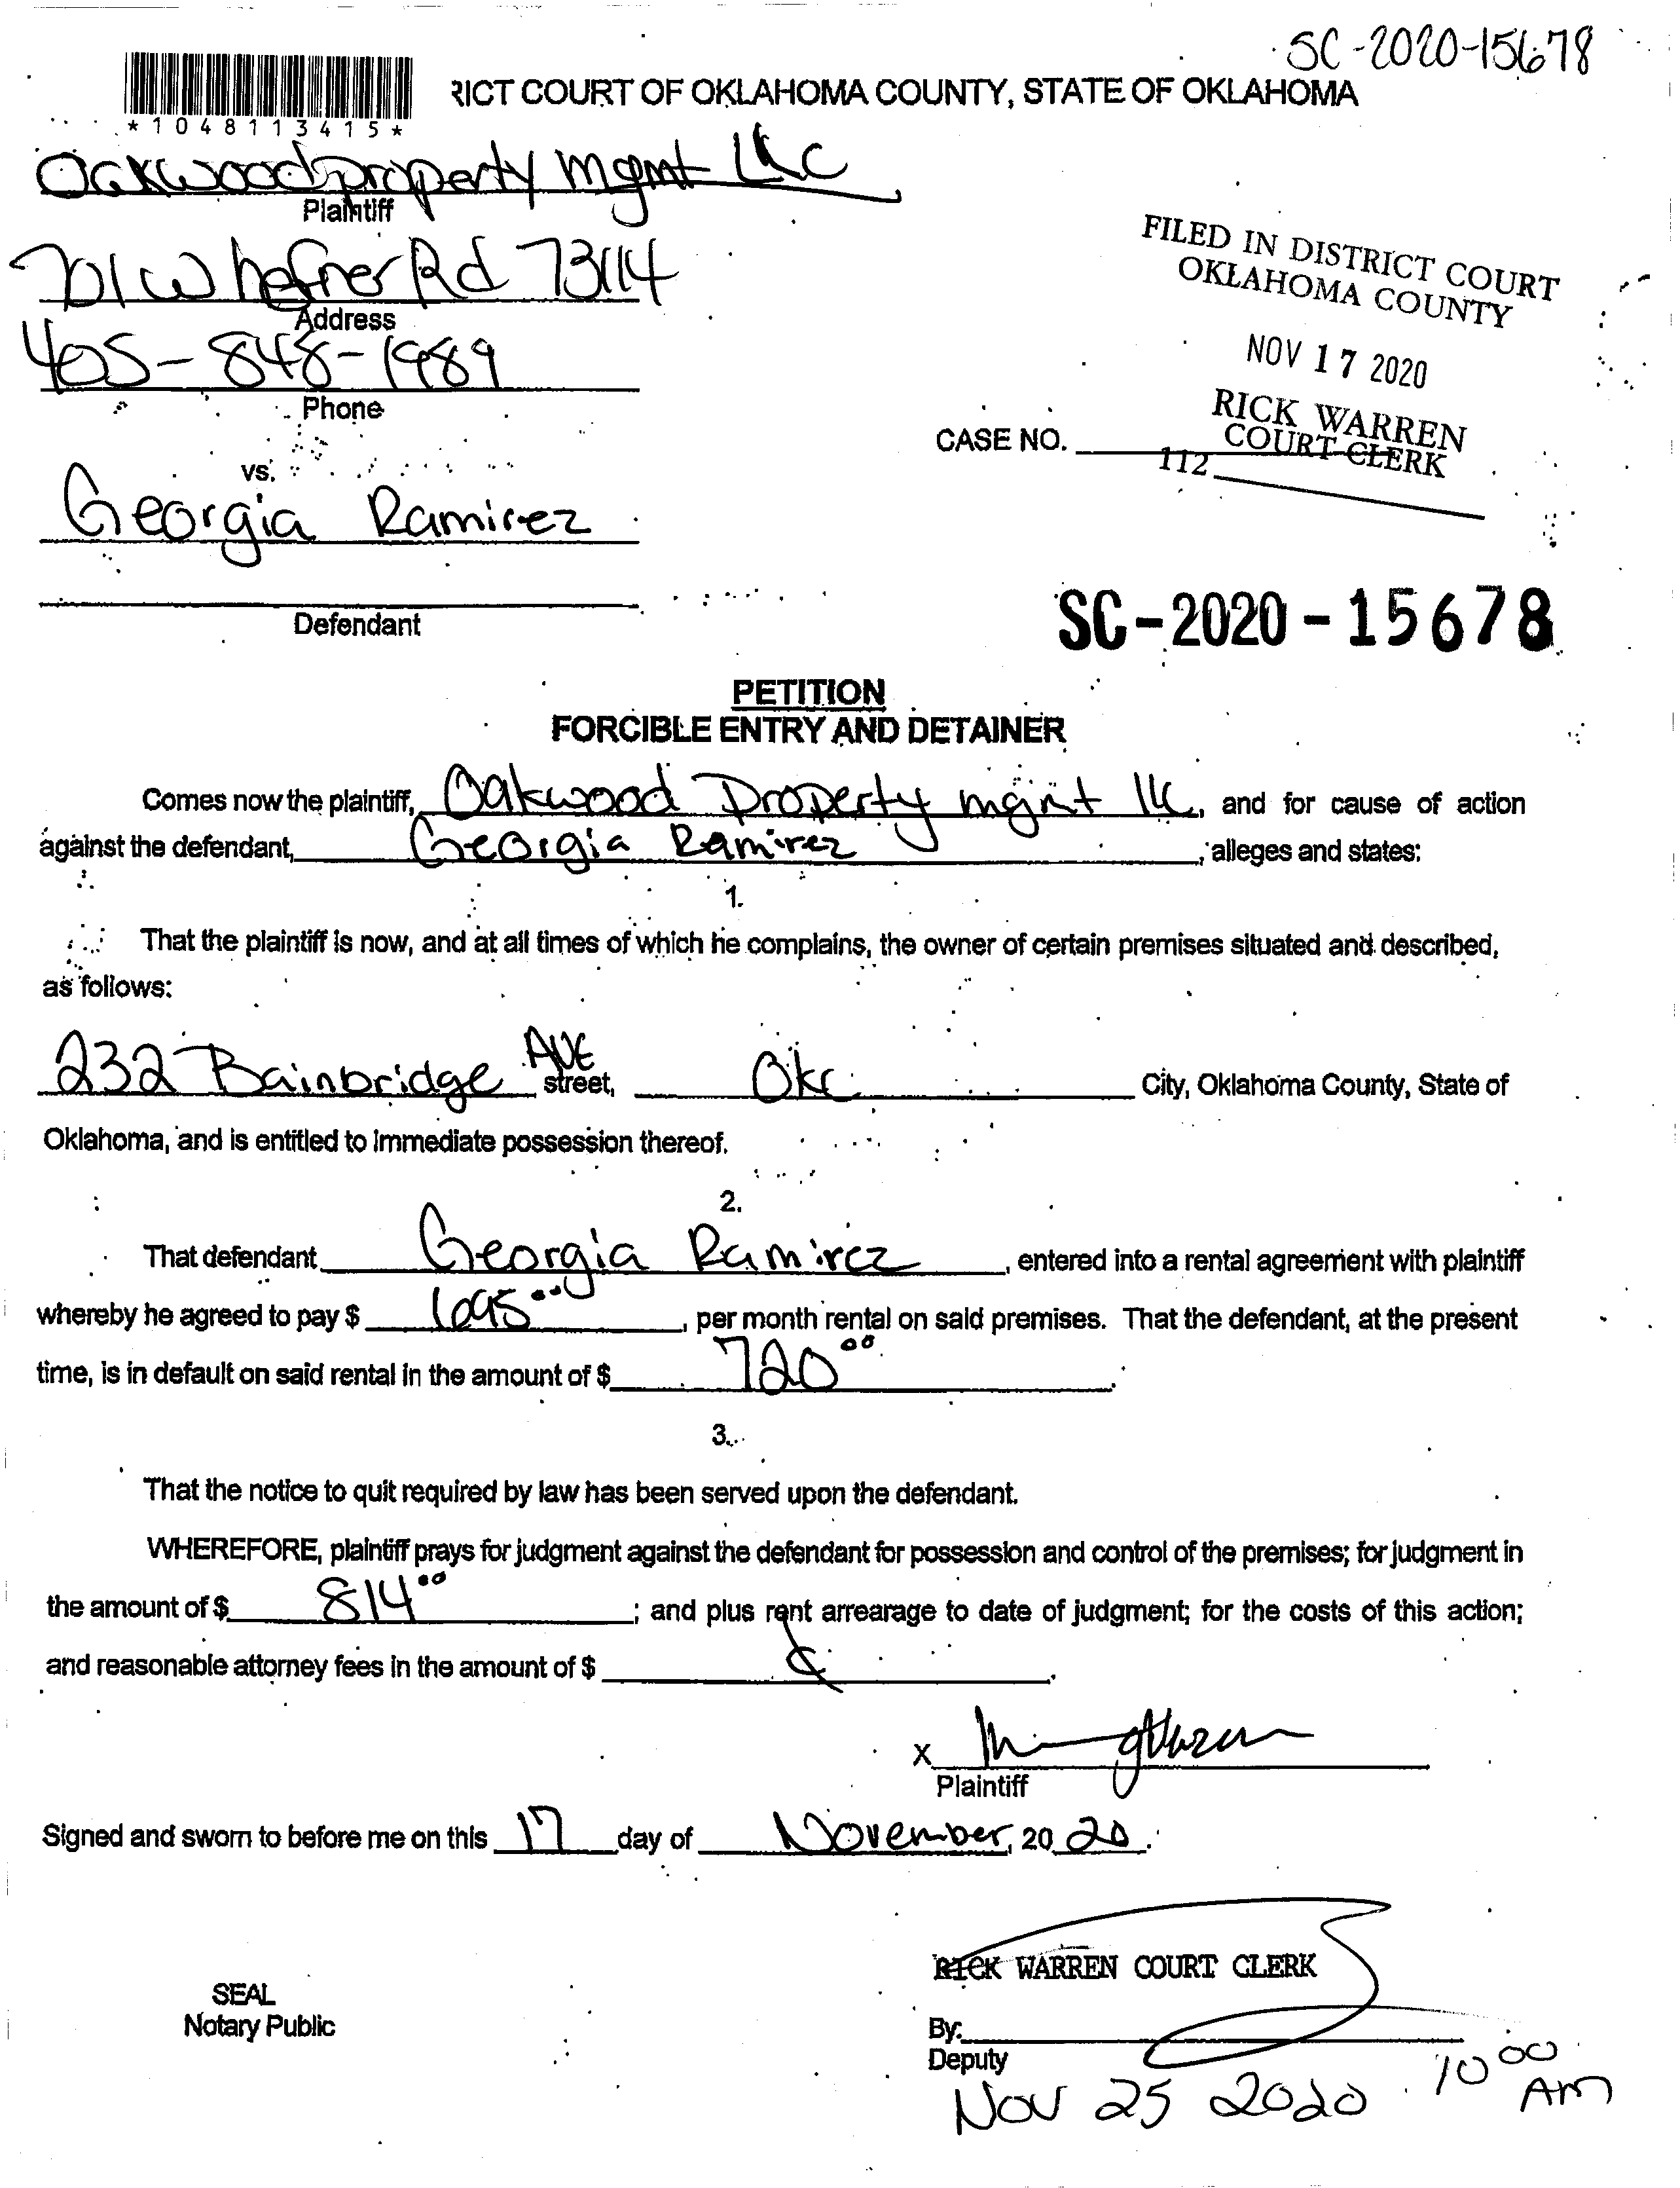 SC-2020-15678
RICT COURT OF OKLAHOMA COUNTY, STATE OF OKLAHOMA
*1048113415*
Oakwood property mgmt LLC
Plaintiff
701 W hefner Rd 73114
Address
405-848-1989
Phone
FILED IN DISTRICT COURT
OKLAHOMA COUNTY
NOV 17 2020
RICK WARREN
COURT CLERK
112
CASE NO.
vs.
Georgia Ramirez
Defendant
SC-2020-15678
PETITION
FORCIBLE ENTRY AND DETAINER
Comes now the plaintiff, Oakwood Property mgmt llc, and for cause of action
against the defendant, Georgia Ramirez, alleges and states:
1.
That the plaintiff is now, and at all times of which he complains, the owner of certain premises situated and described,
as follows:
232 Bainbridge AVE street, Okc City, Oklahoma County, State of
Oklahoma, and is entitled to immediate possession thereof.
2.
That defendant Georgia Ramirez, entered into a rental agreement with plaintiff
whereby he agreed to pay $ 1095 00, per month rental on said premises. That the defendant, at the present
time, is in default on said rental in the amount of $ 720 00.
3.
That the notice to quit required by law has been served upon the defendant.
WHEREFORE, plaintiff prays for judgment against the defendant for possession and control of the premises; for judgment in
the amount of $ 814 00; and plus rent arrearage to date of judgment; for the costs of this action;
and reasonable attorney fees in the amount of $.
X
Plaintiff
Signed and sworn to before me on this 17 day of November, 20 20.
RICK WARREN COURT CLERK
SEAL
Notary Public
By:
Deputy
Nov 25 2020 10 00 AM